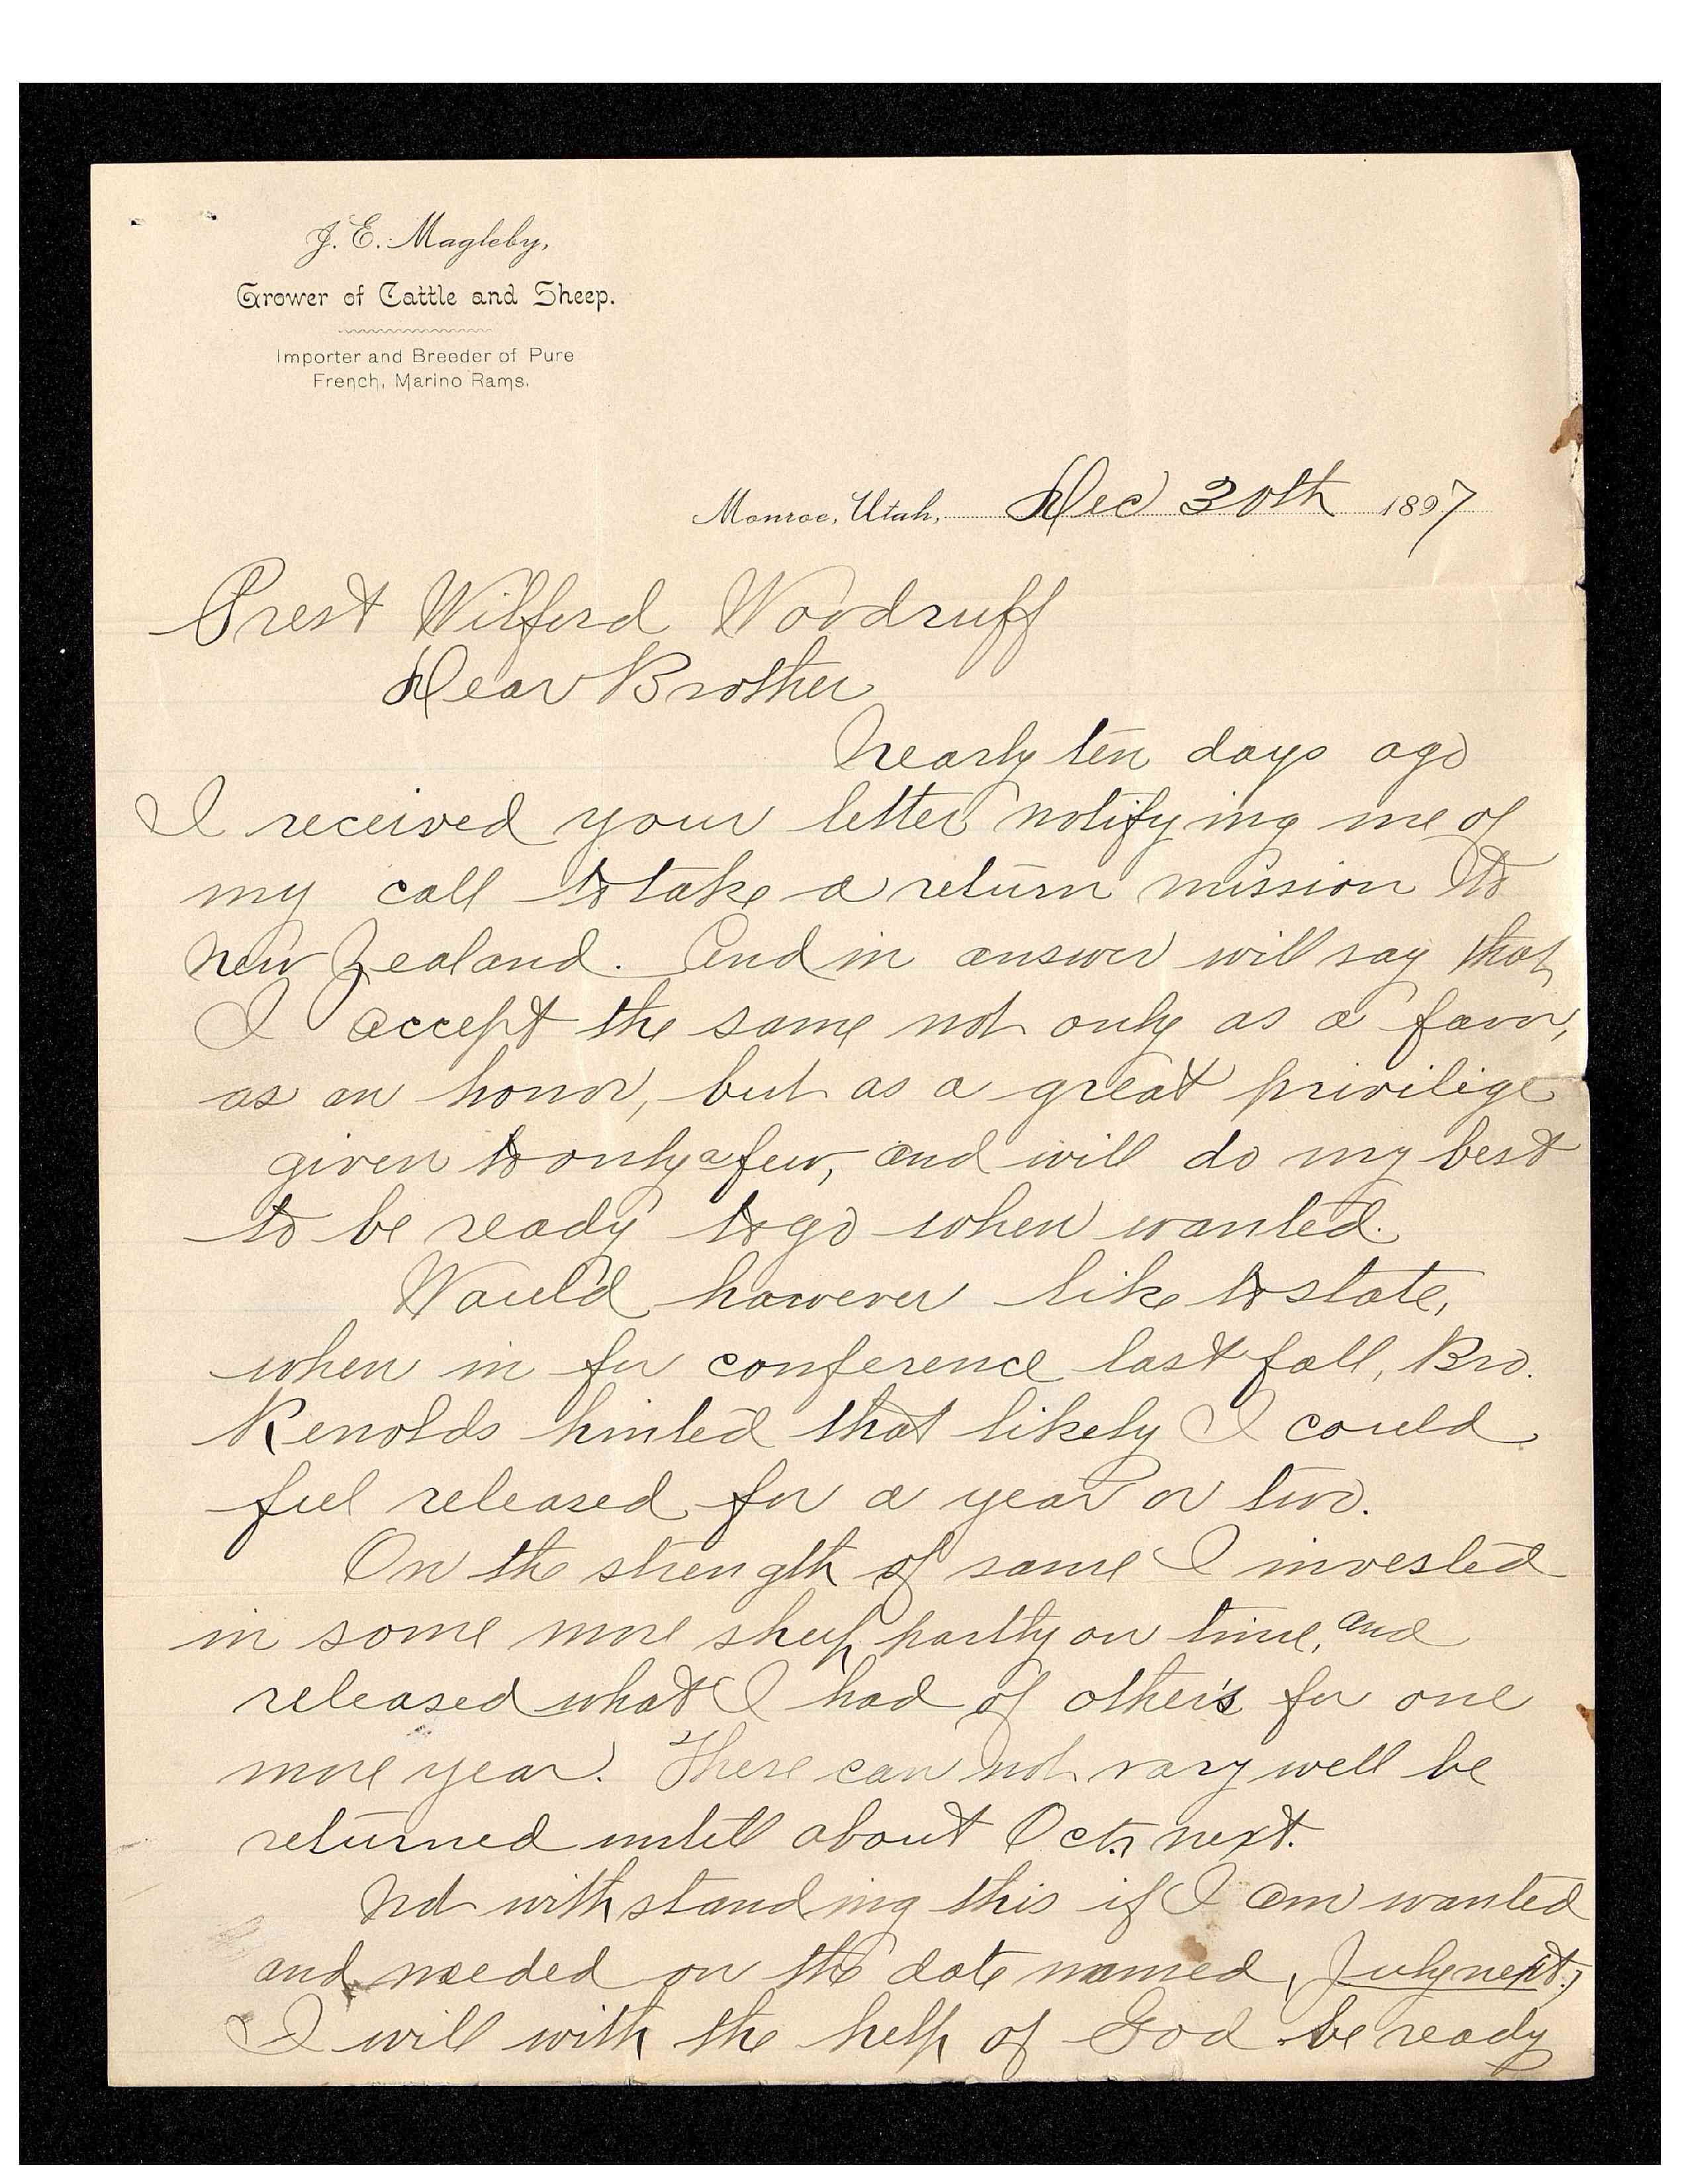 J. E. Magleby,
Grower of Cattle and Sheep.
Importer and Breeder of Pure
French, Marino Rams.
Monroe, Utah, Dec 30th 1897
Prest Wilford Woodruff
Dear Brother
Nearly ten days ago
I received your letter notifying me of
my call to take a return mission to
New Zealand. And in answer will say that
I accept the same not only as a favor,
as an honor, but as a great privilige
given to only a few, and will do my best
to be ready to go when wanted.
Would however like to state,
when in for conference last fall, Bro.
Renolds hinted that likely I could
feel released for a year or two.
On the strength of same I invested
in some more sheep partly on time, and
released what I had of other's for one
more year. These can not vary well be
returned untill about Oct. next.
Not with standing this if I am wanted
and needed on the date named, July next,
I will with the help of God be ready